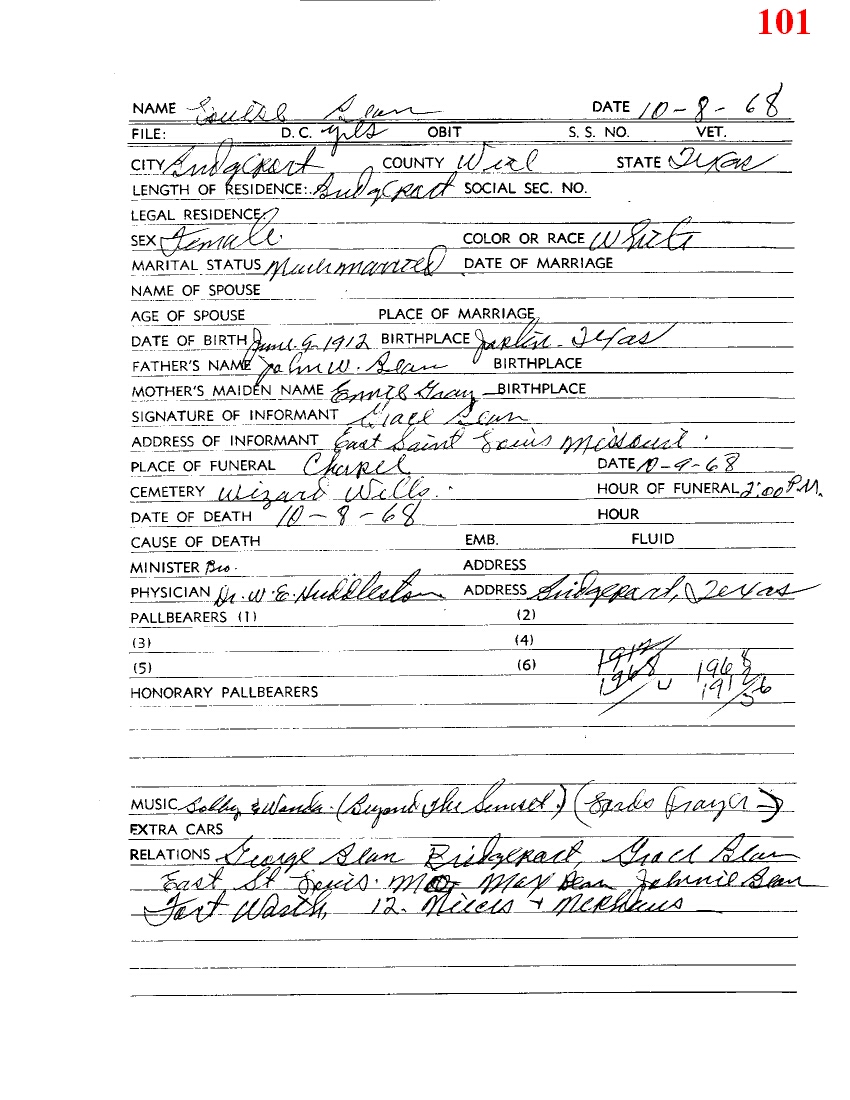 101
NAME Louise Bean DATE 10-8-68
FILE: D.C. OBIT S. S. NO. VET.
CITY Bridgeport COUNTY Wise STATE Texas
LENGTH OF RESIDENCE: Bridgeport SOCIAL SEC. NO.
LEGAL RESIDENCE
SEX Female COLOR OR RACE White
MARITAL STATUS DATE OF MARRIAGE
NAME OF SPOUSE
AGE OF SPOUSE PLACE OF MARRIAGE
DATE OF BIRTH June-9-1912 BIRTHPLACE Joplin-Texas
FATHER'S NAME John W. Bean BIRTHPLACE
MOTHER'S MAIDEN NAME Gray BIRTHPLACE
SIGNATURE OF INFORMANT Grace Bean
ADDRESS OF INFORMANT East Saint Louis Missouri.
PLACE OF FUNERAL Chapel DATE 10-9-68
CEMETERY Wizard Wells. HOUR OF FUNERAL 2:00 P.M.
DATE OF DEATH 10-8-68 HOUR
CAUSE OF DEATH EMB. FLUID
MINISTER Bro. ADDRESS
PHYSICIAN Dr. W.E. Huddleston ADDRESS Bridgeport, Texas
PALLBEARERS (1) (2)
(3) (4)
(5) (6) 1912 1968
1968 1912 56
HONORARY PALLBEARERS
MUSIC & Wanda. (Beyond The Sunset) (Lords Prayer)
EXTRA CARS
RELATIONS George Bean Bridgeport, Grace Bean
East St Louis. Mo Max Bean Johnnie Bean
Fort Worth, 12. Nieces + Nephews